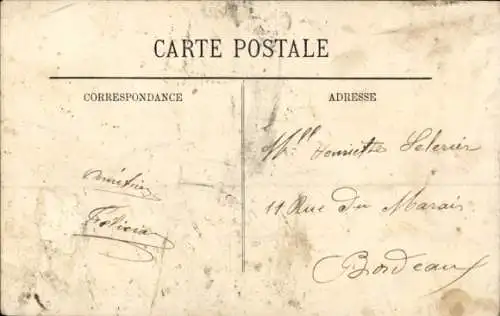 CARTE POSTALE
CORRESPONDANCE
ADRESSE
Felicia
Mlle Henriette Selerier
11 Rue du Marais
Bordeaux